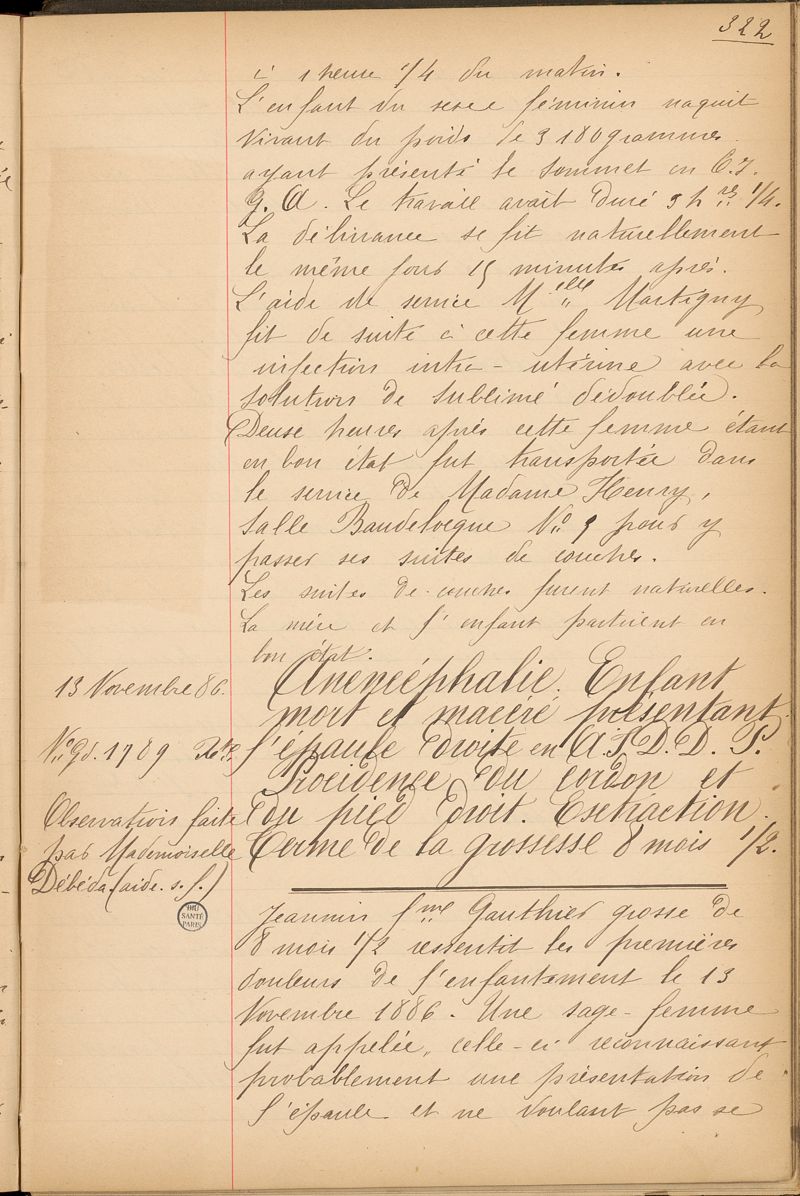 322
à 1 heure 1/4 du matin.
L'enfant du sexe féminin naquit
vivant du poids de 3180 grammes
ayant présenté le sommet en O.I.
G.A. Le travail avait duré 5 hres 1/4.
La délivrance se fit naturellement
le même jour 15 minutes après.
L'aide de service Melle Martigny
fit de suite à cette femme une
injection intra-utérine avec la
solution de sublimé dédoublée.
Deux heures après cette femme étant
en bon état fut transportée dans
le service de Madame Henry,
salle Baudelocque No 9 pour y
passer ses suites de couches.
Les suites de couches furent naturelles.
La mère et l'enfant partirent en
bon état.
13 Novembre 86.
No Gd. 1789
Observation faite
par Mademoiselle
Débéda (aide. s. f.)
BIU
SANTÉ
PARIS
Anencéphalie. Enfant
mort et macéré présentant
l'épaule droite en A.I.D.D.P.
Procidence du cordon et
du pied droit. Extraction.
Terme de la grossesse 8 mois 1/2.
Jeannin fme Gauthier grosse de
8 mois 1/2 ressentit les premières
douleurs de l'enfantement le 13
Novembre 1886. Une sage-femme
fut appelée, celle-ci reconnaissant
probablement une présentation de
l'épaule et ne voulant pas se